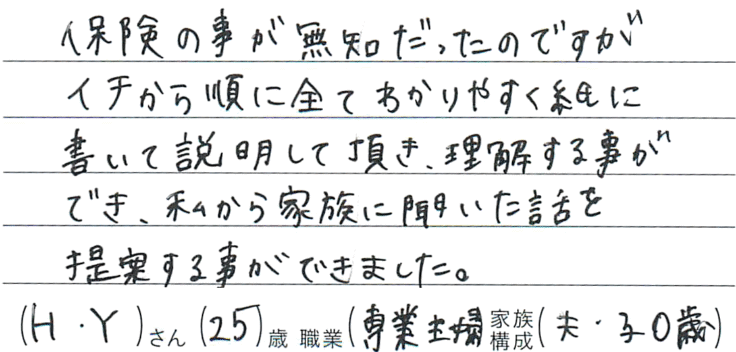 保険の事が無知だったのですが
イチから順に全てわかりやすく紙に
書いて説明して頂き、理解する事が
でき、私から家族に聞いた話を
提案する事ができました。
(H・Y)さん (25)歳 職業(専業主婦 家族構成(夫・子0歳)